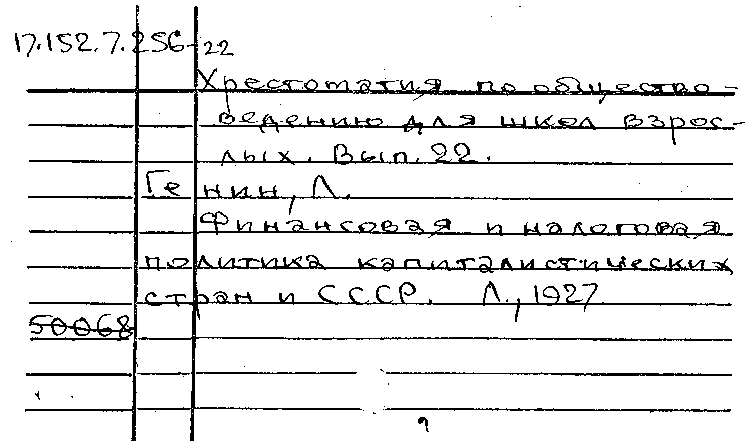 17.152.7.256-22
Хрестоматия по общество-
ведению для школ взрос-
лых. Вып. 22.
Генин, Л.
Финансовая и налоговая
политика капиталистических
стран и СССР. Л., 1927
50068